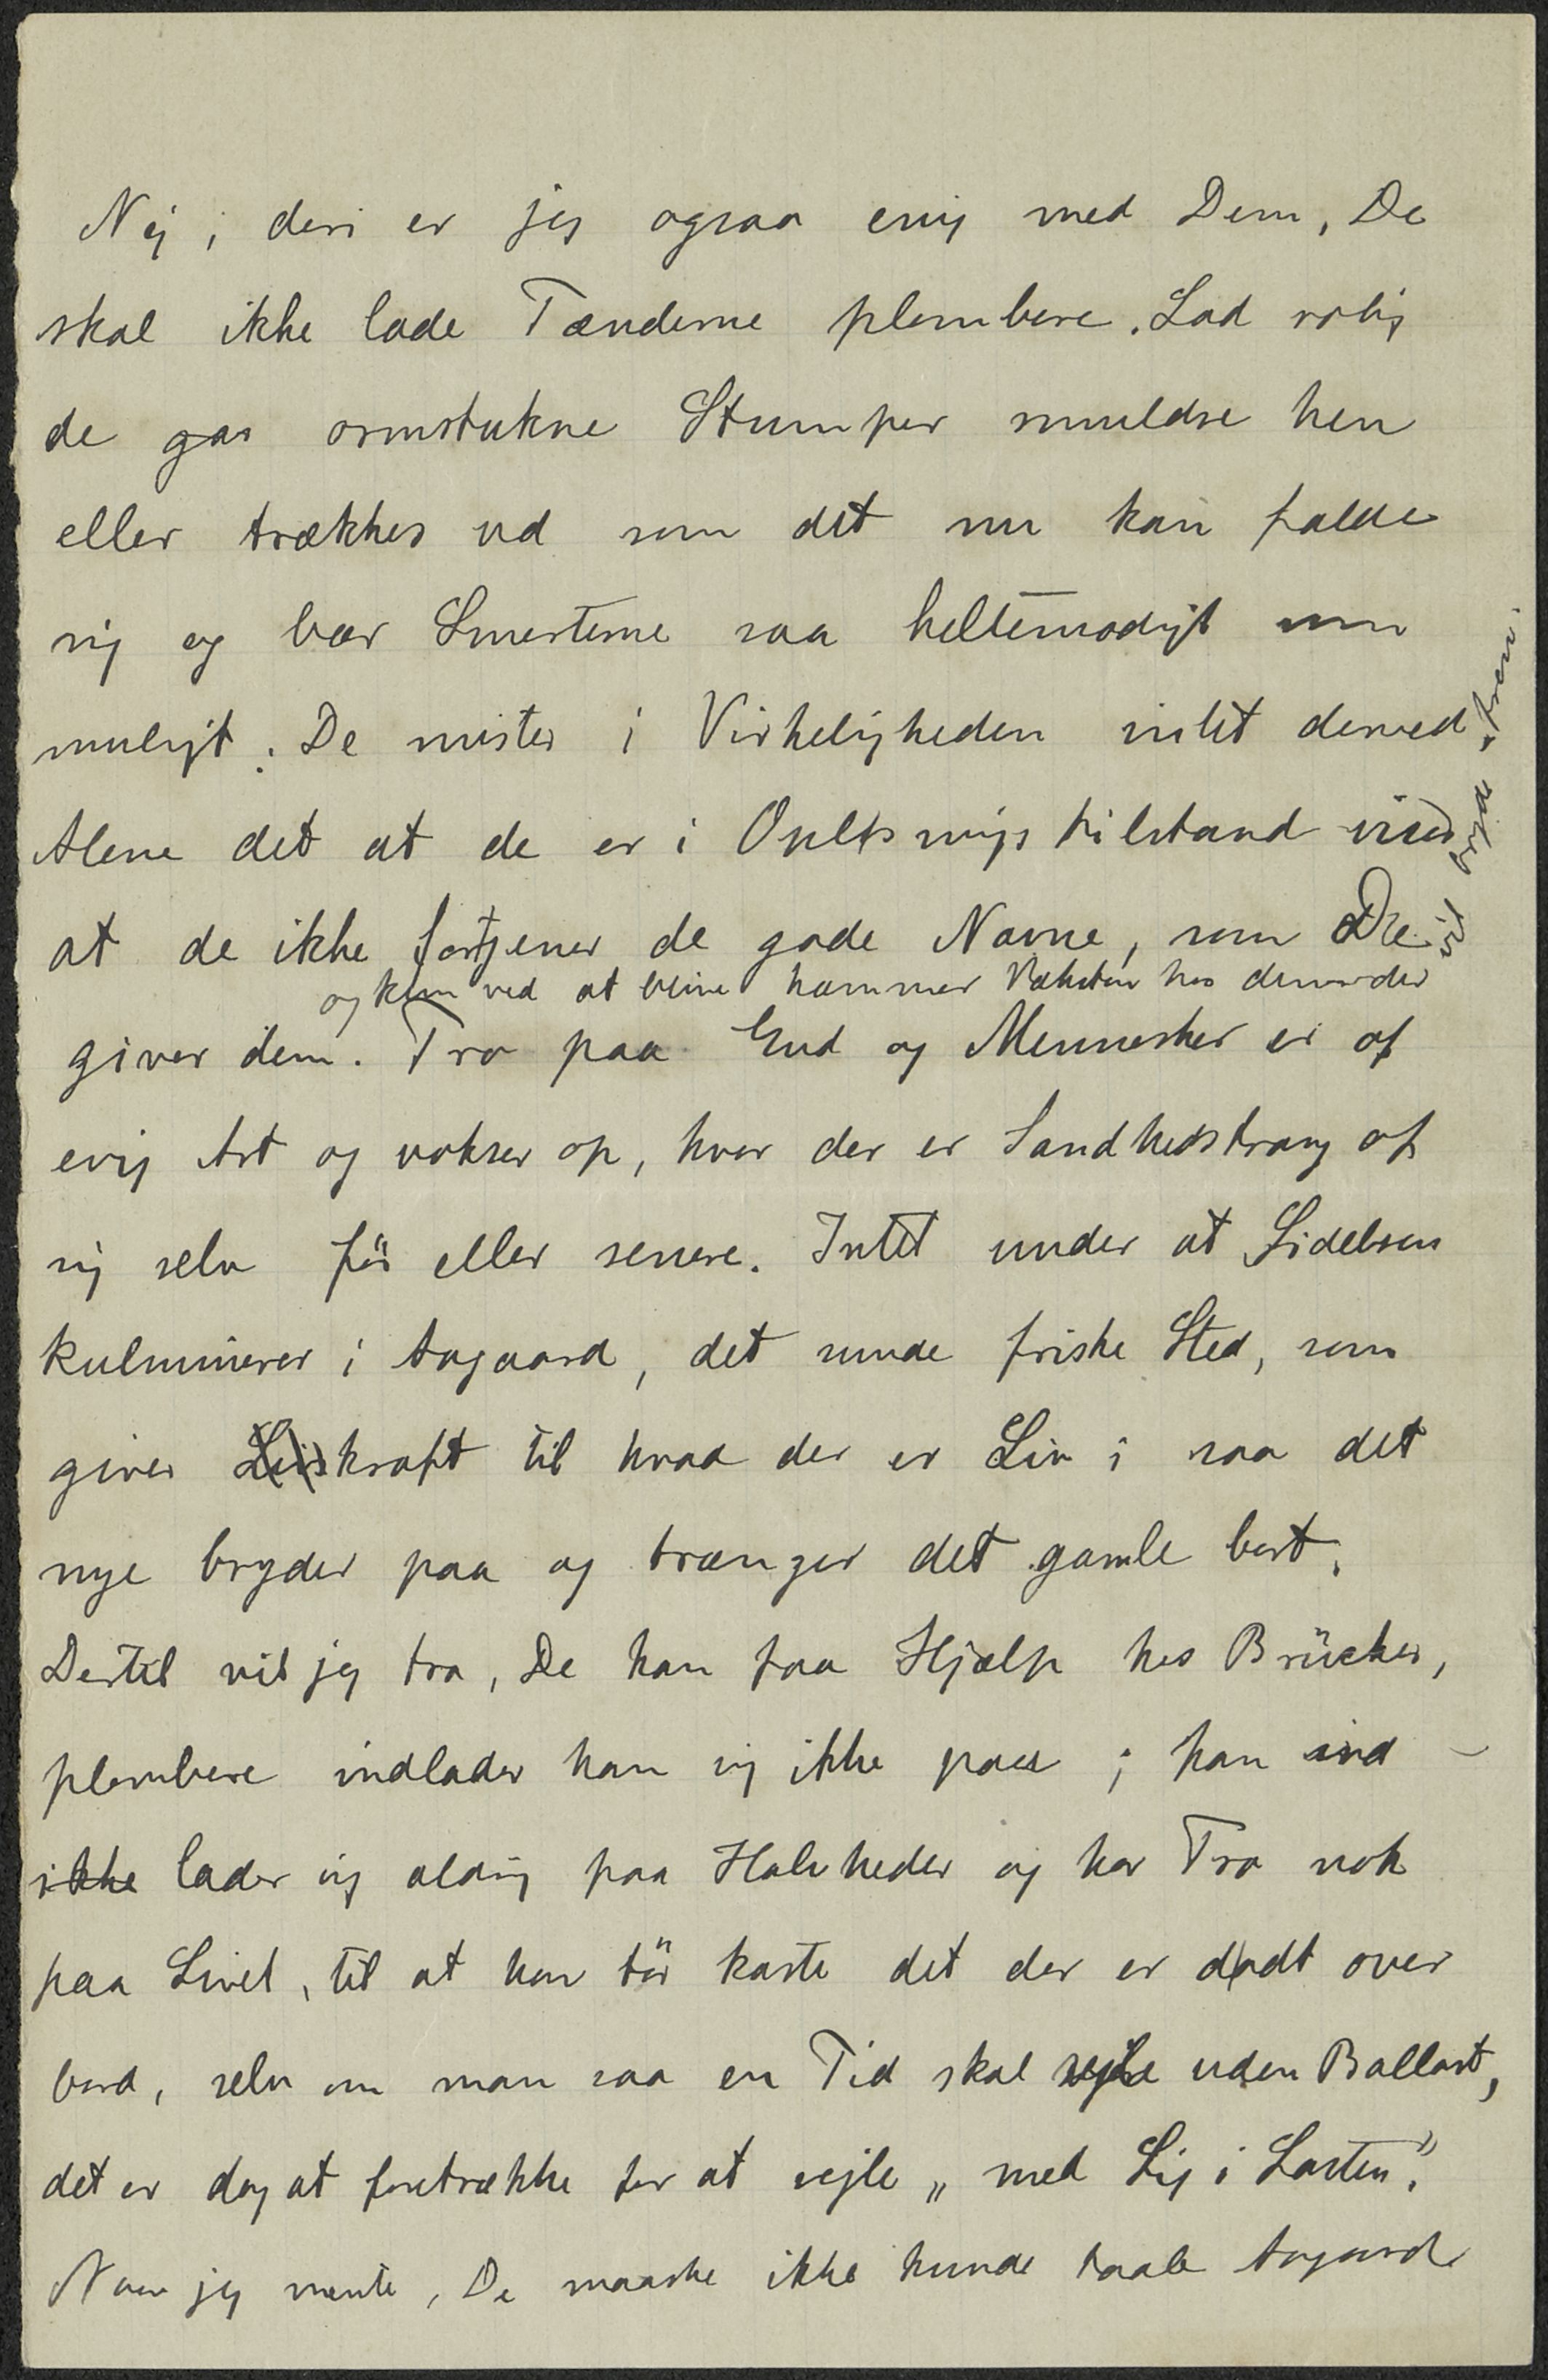 Nej, deri er jeg ogsaa enig med Dem, De
skal ikke lade Tænderne plombere. Lad rolig
de gas ormstukne Stumper smuldre hen
eller trækkes ud som det nu kan falde
sig og bær Smerterne saa heltemodigt som
muligt. De mister i Virkeligheden intet derved.
Alene det at de er i Opløsningstilstand viser
at de ikke fortjener de gode Navne, som De
og kun ved at blive hæmmer Væksten hos dem der
giver dem. Tro paa Gud og Mennesker er af
evig Art og vokser op, hvor der er Sandhedstrang af
sig selv før eller senere. Intet under at Lidelsen
kulminerer i Aagaard, det sunde friske Sted, som
giver Livskraft til hvad der er Liv i saa det
nye bryder paa og trænger det gamle bort.
Dertil vil jeg tro, De kan faa Hjælp hos Brücker,
plombere indlader han sig ikke paa; han ind-
ikke lader sig aldrig paa Halvheder og har Tro nok
paa Livet, til at han tør kaste det der er dødt over
bord, selv om man saa en Tid skal sejle uden Ballast,
det er dog at foretrække for at sejle „med Lig i Lasten."
Naar jeg mente, De maaske ikke kunde taale Aagaard
frem.